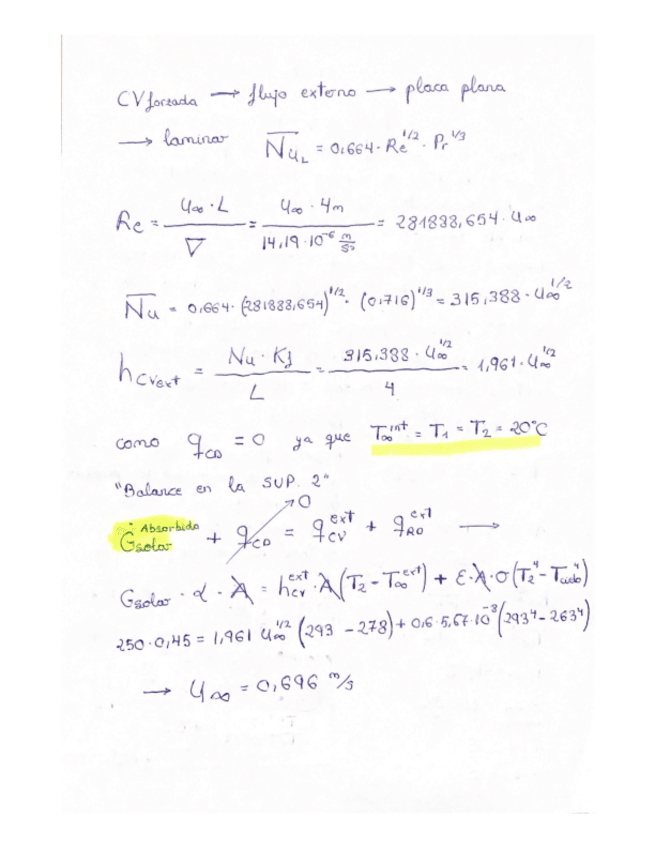 CV forzada → flujo externo → placa plana
→ laminar N̅u̅_L = 0,664 · Re^1/2 · Pr^1/3
Re = u∞ · L / ∇ = u∞ · 4m / 14,19·10^-6 m/s² = 281888,654 · u∞
N̅u̅ = 0,664 · (281888,654)^1/2 · (0,716)^1/3 = 315,388 · u∞^1/2
h_cvext = Nu · Kf / L = 315,388 · u∞^1/2 / 4 = 1,961 · u∞^1/2
como q_CD = 0 ya que T∞^int = T1 = T2 = 20°C
"Balance en la SUP. 2"
Ġsolar Absorbido + q_CD →0 = q_CV^ext + q_RD^ext →
Gsolar · α · A = h_cv^ext · A (T2 - T∞^ext) + ε·A·σ (T2^4 - Tcielo^4)
250 · 0,45 = 1,961 u∞^1/2 (293 - 278) + 0,6 · 5,67·10^-8 (293^4 - 263^4)
→ u∞ = 0,696 m/s